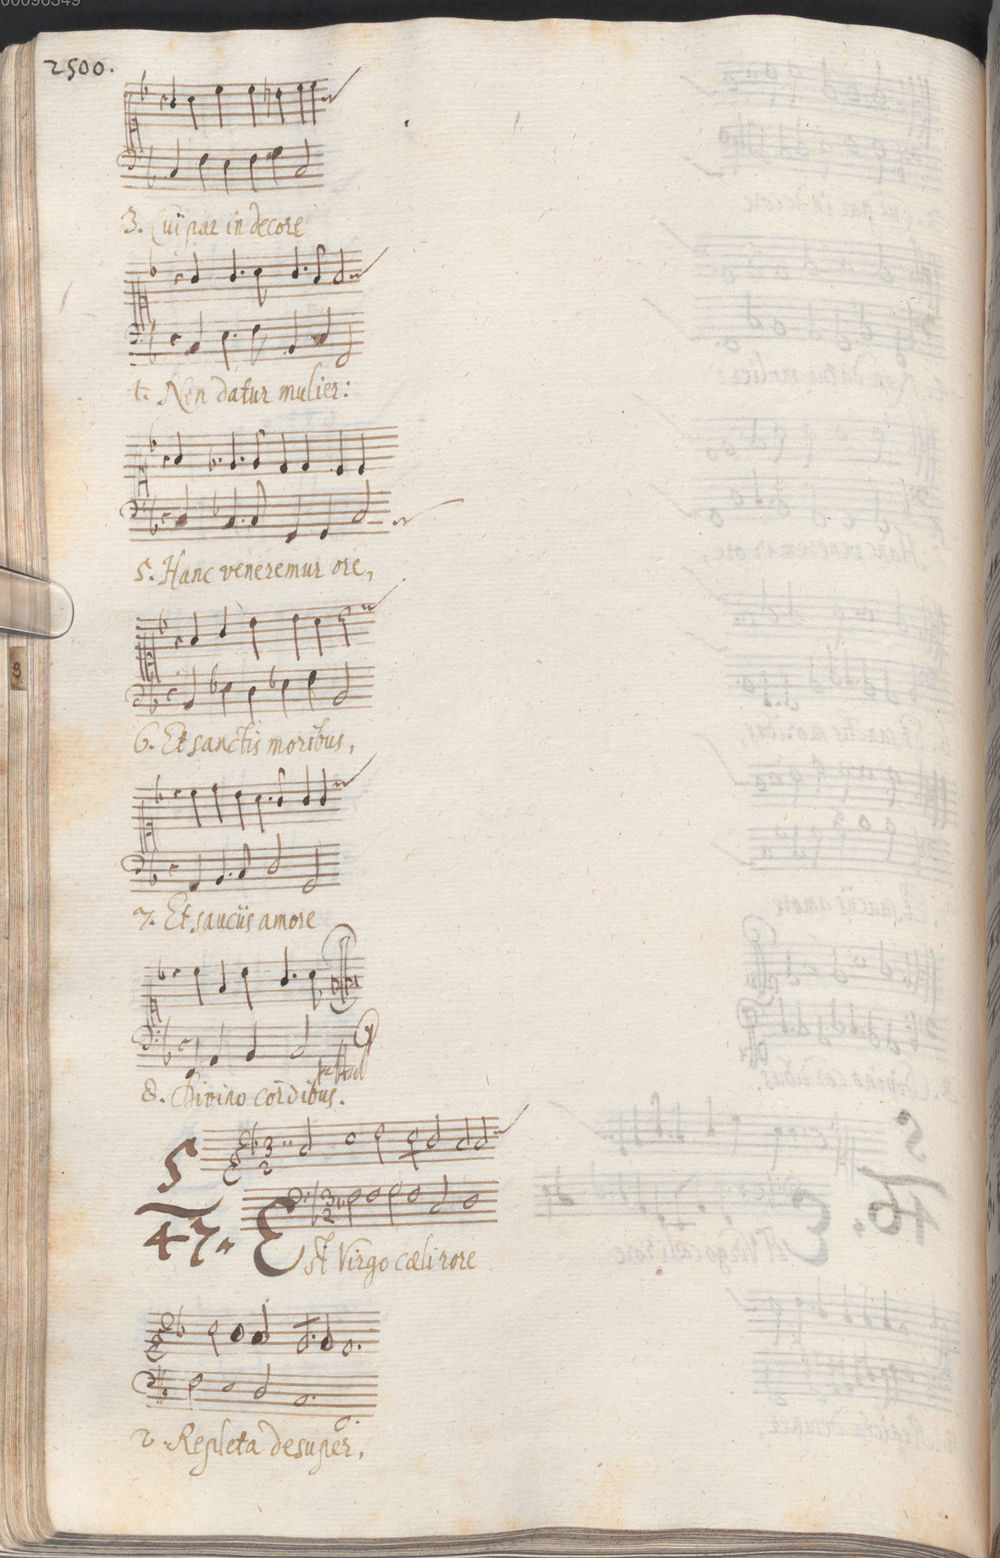 00096349
2500.
3. Cui par in decore
4. Non datur mulier:
5. Hanc veneremur ore,
6. Et sanctis moribus,
7. Et sauciis amore
8. Divino cordibus.
5
47. Est Virgo cæli rore
2. Repleta desuper,